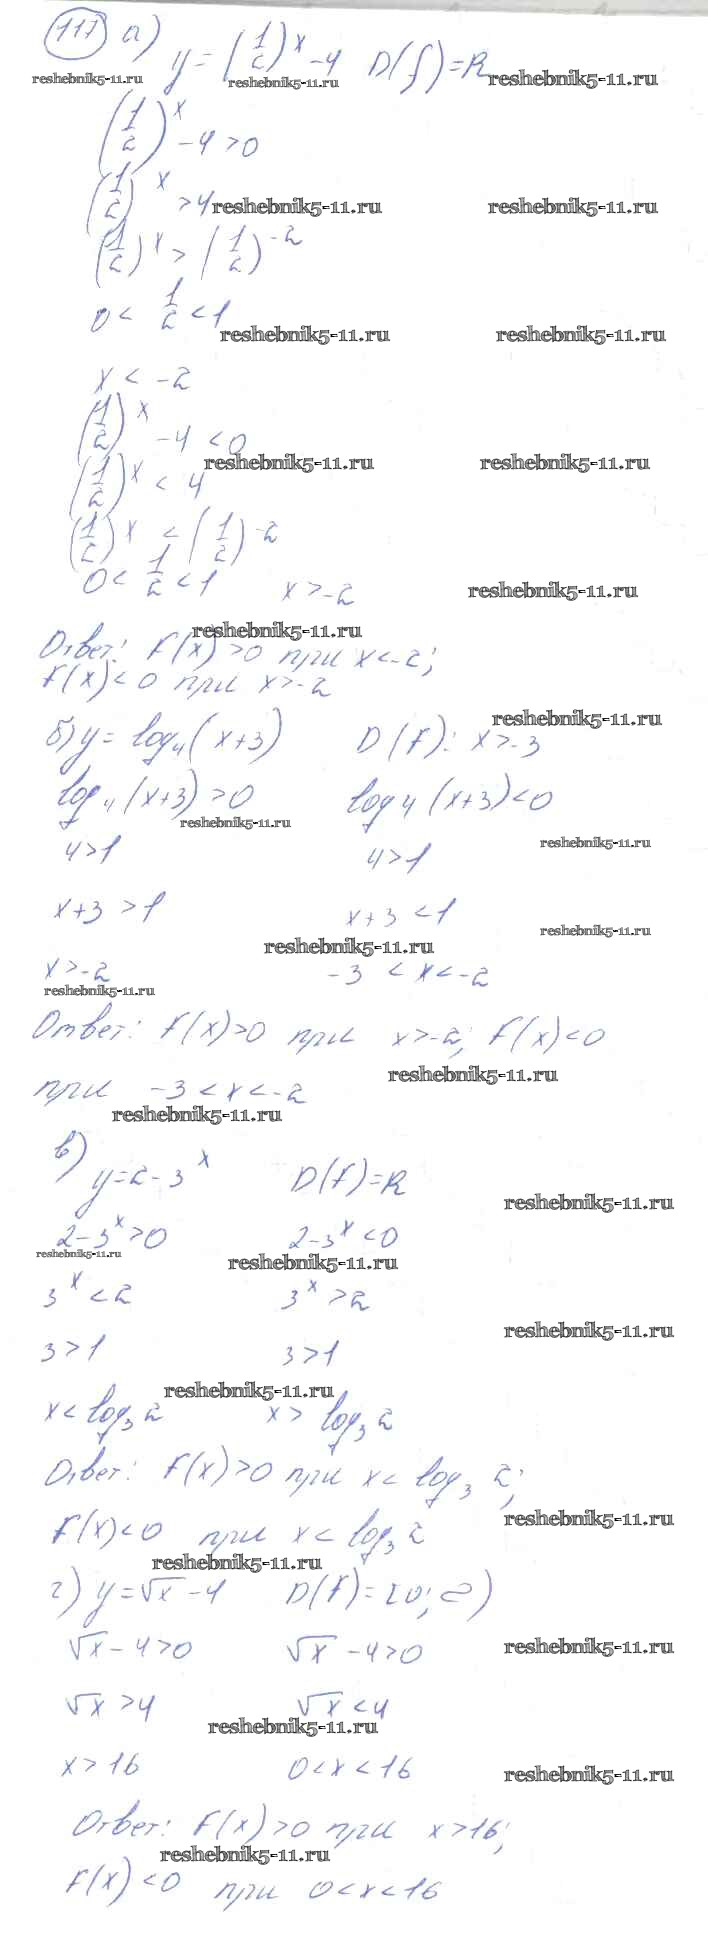 117 а) y = (1/2)^x - 4 D(f) = R
reshebnik5-11.ru reshebnik5-11.ru reshebnik5-11.ru
(1/2)^x - 4 > 0
(1/2)^x > 4
reshebnik5-11.ru reshebnik5-11.ru
(1/2)^x > (1/2)^-2
0 < 1/2 < 1
reshebnik5-11.ru reshebnik5-11.ru
x < -2
(1/2)^x - 4 < 0
reshebnik5-11.ru reshebnik5-11.ru
(1/2)^x < 4
(1/2)^x < (1/2)^-2
0 < 1/2 < 1 x > -2
reshebnik5-11.ru
reshebnik5-11.ru
Ответ: F(x) > 0 при x < -2;
F(x) < 0 при x > -2
reshebnik5-11.ru
б) y = log₄(x+3) D(f): x > -3
log₄(x+3) > 0 log₄(x+3) < 0
reshebnik5-11.ru
reshebnik5-11.ru
4 > 1 4 > 1
x+3 > 1 x+3 < 1
reshebnik5-11.ru
reshebnik5-11.ru
x > -2 -3 < x < -2
reshebnik5-11.ru
Ответ: F(x) > 0 при x > -2; F(x) < 0
reshebnik5-11.ru
при -3 < x < -2
reshebnik5-11.ru
в) y = 2 - 3^x D(f) = R
reshebnik5-11.ru
2 - 3^x > 0 2 - 3^x < 0
reshebnik5-11.ru reshebnik5-11.ru
3^x < 2 3^x > 2
reshebnik5-11.ru
3 > 1 3 > 1
reshebnik5-11.ru
x < log₃ 2 x > log₃ 2
Ответ: F(x) > 0 при x < log₃ 2;
reshebnik5-11.ru
F(x) < 0 при x < log₃ 2
reshebnik5-11.ru
г) y = √x - 4 D(f) = [0; ∞)
√x - 4 > 0 √x - 4 > 0
reshebnik5-11.ru
√x > 4 √x < 4
reshebnik5-11.ru
x > 16 0 < x < 16
reshebnik5-11.ru
Ответ: F(x) > 0 при x > 16;
reshebnik5-11.ru
F(x) < 0 при 0 < x < 16